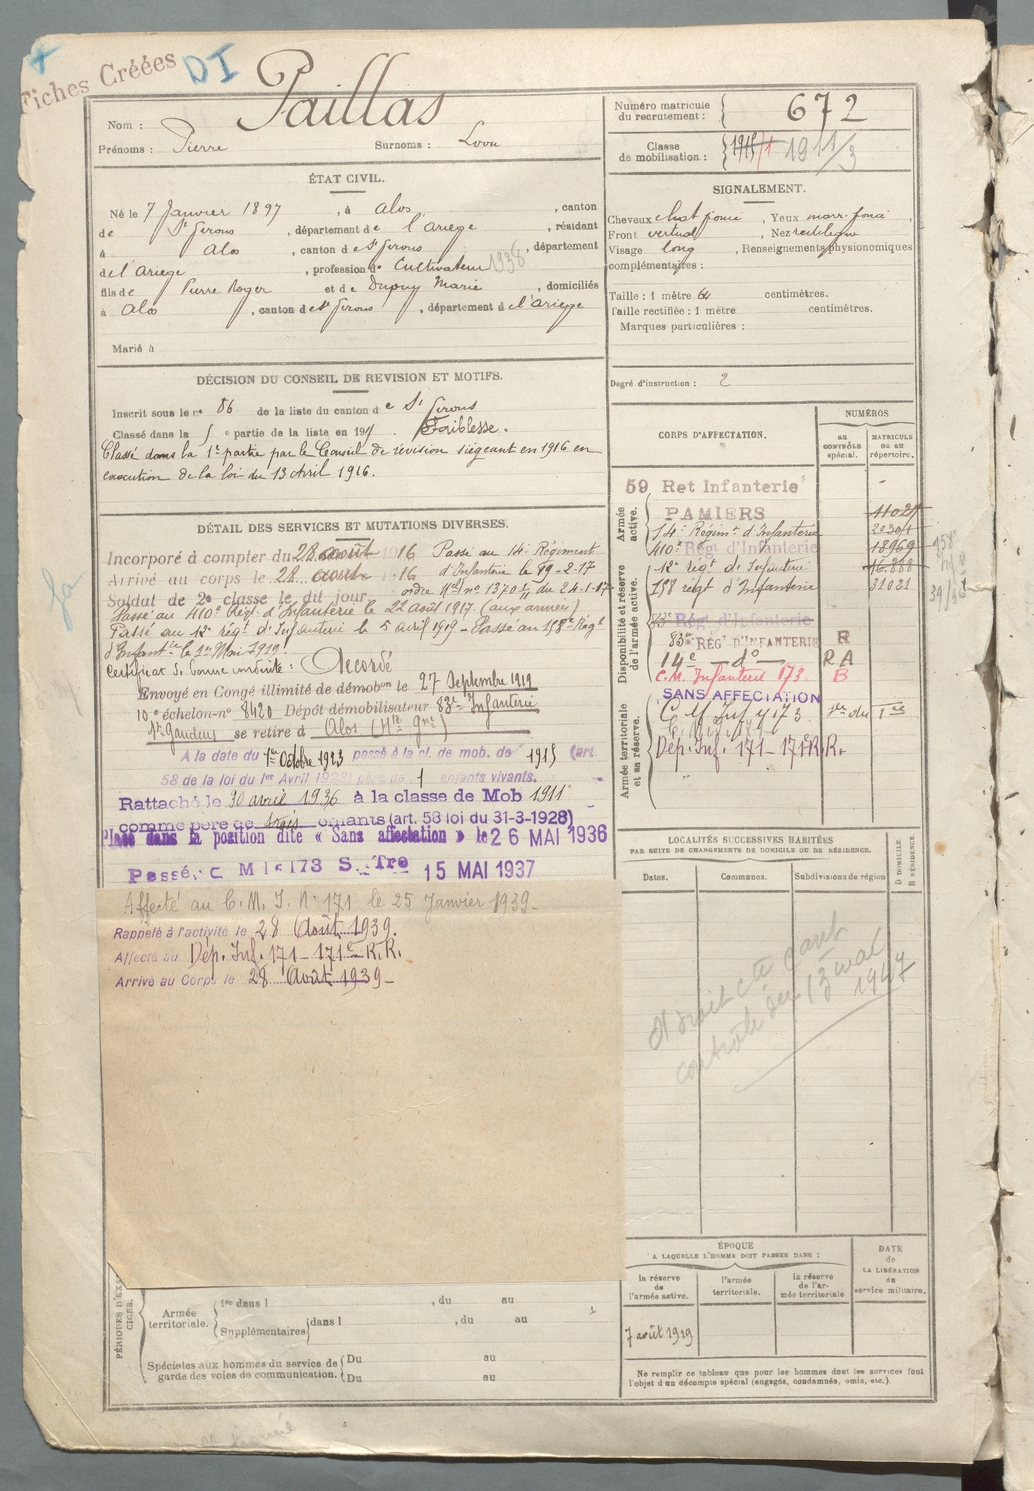 Fiches Créées DI
Nom : Paillas
Prénoms : Pierre Surnoms :
Numéro matricule du recrutement : 672
Classe de mobilisation : 1915 1911/3
ÉTAT CIVIL.
Né le 7 Janvier 1897, à Alos, canton
de St Girons, département de l'Ariège, résidant
à Alos, canton de St Girons, département
de l'Ariège, profession de Cultivateur 1938
fils de Pierre Roger et de Dupuy Marie, domiciliés
à Alos, canton de St Girons, département de l'Ariège
Marié à
SIGNALEMENT.
Cheveux chat foncé, Yeux marr. foncé,
Front vertical, Nez rectiligne
Visage long, Renseignements physionomiques
complémentaires :
Taille : 1 mètre 64 centimètres.
Taille rectifiée : 1 mètre centimètres.
Marques particulières :
Degré d'instruction : 2
DÉCISION DU CONSEIL DE REVISION ET MOTIFS.
Inscrit sous le no 86 de la liste du canton de St Girons
Classé dans la 5 e partie de la liste en 191 . Faiblesse.
Classé dans la 1e partie par le Conseil de révision siégeant en 1916 en
exécution de la loi du 13 Avril 1916.
DÉTAIL DES SERVICES ET MUTATIONS DIVERSES.
Incorporé à compter du 28 août 1916 Passé au 14e Régiment
Arrivé au corps le 28 août 16 d'Infanterie le 19-2-17
Soldat de 2e classe le dit jour ordre no 1370 du 24-1-17
Passé au 410e Régt d'Infanterie le 22 août 1917 (aux armées)
Passé au 12e régt d'Infanterie le 5 avril 1919 - Passé au 158e Régt
d'Infantie le 1er Mai 1919.
Certificat de bonne conduite : Accordé
Envoyé en Congé illimité de démobon le 27 Septembre 1919
10e échelon-no 8420 Dépôt démobilisateur 83e Infanterie
St Gaudens se retire à Alos (Hte Gne)
A la date du 1er Octobre 1923 passé à la cl. de mob. de 1915 (art.
58 de la loi du 1er Avril 1923) père de 1 enfants vivants.
Rattaché le 30 avril 1936 à la classe de Mob 1911
comme père de trois enfants (art. 58 loi du 31-3-1928)
Placé dans la position dite « Sans affectation » le 26 MAI 1936
Passé. C M I 173 S. Tre 15 MAI 1937
Affecté au C. M. I. N° 171 le 25 Janvier 1939-
Rappelé à l'activité le 28 Août 1939.
Affecté au Dép. Inf. 171 - 171e R.R.
Arrivé au Corps le 28 Août 1939-
CORPS D'AFFECTATION.
NUMÉROS
AU CONTRÔLE spécial.
MATRICULE ou au répertoire.
Armée active.
59 Ret Infanterie
PAMIERS 11021
14e Régimt d'Infanterie
410e Régt d'Infanterie 18969
Disponibilité et réserve de l'armée active.
12e régt d'Infanterie 16.888
158 régt d'Infanterie 31031
83e Régt d'Infanterie
83e RÉGt D'INFANTERIE R
14e - do - R A
C.M. Infanterie 173 B
SANS AFFECTATION
Armée territoriale et sa réserve.
C M Inf 173
Dép. Inf. 171 - 171e R.R.
LOCALITÉS SUCCESSIVES HABITÉES
PAR SUITE DE CHANGEMENTS DE DOMICILE OU DE RÉSIDENCE.
Dates. Communes. Subdivisions de région
D DOMICILE
R RÉSIDENCE.
contrôle
1947
ÉPOQUE
A LAQUELLE L'HOMME DOIT PASSER DANS :
la réserve de l'armée active.
l'armée territoriale.
la réserve de l'armée territoriale.
DATE de LA LIBÉRATION du service militaire.
7 août 1919
Ne remplir ce tableau que pour les hommes dont les services font
l'objet d'un décompte spécial (engagés, condamnés, omis, etc.).
Armée territoriale.
1re dans l , du au
Supplémentaires dans l , du au
Spéciales aux hommes du service de
garde des voies de communication.
Du au
Du au